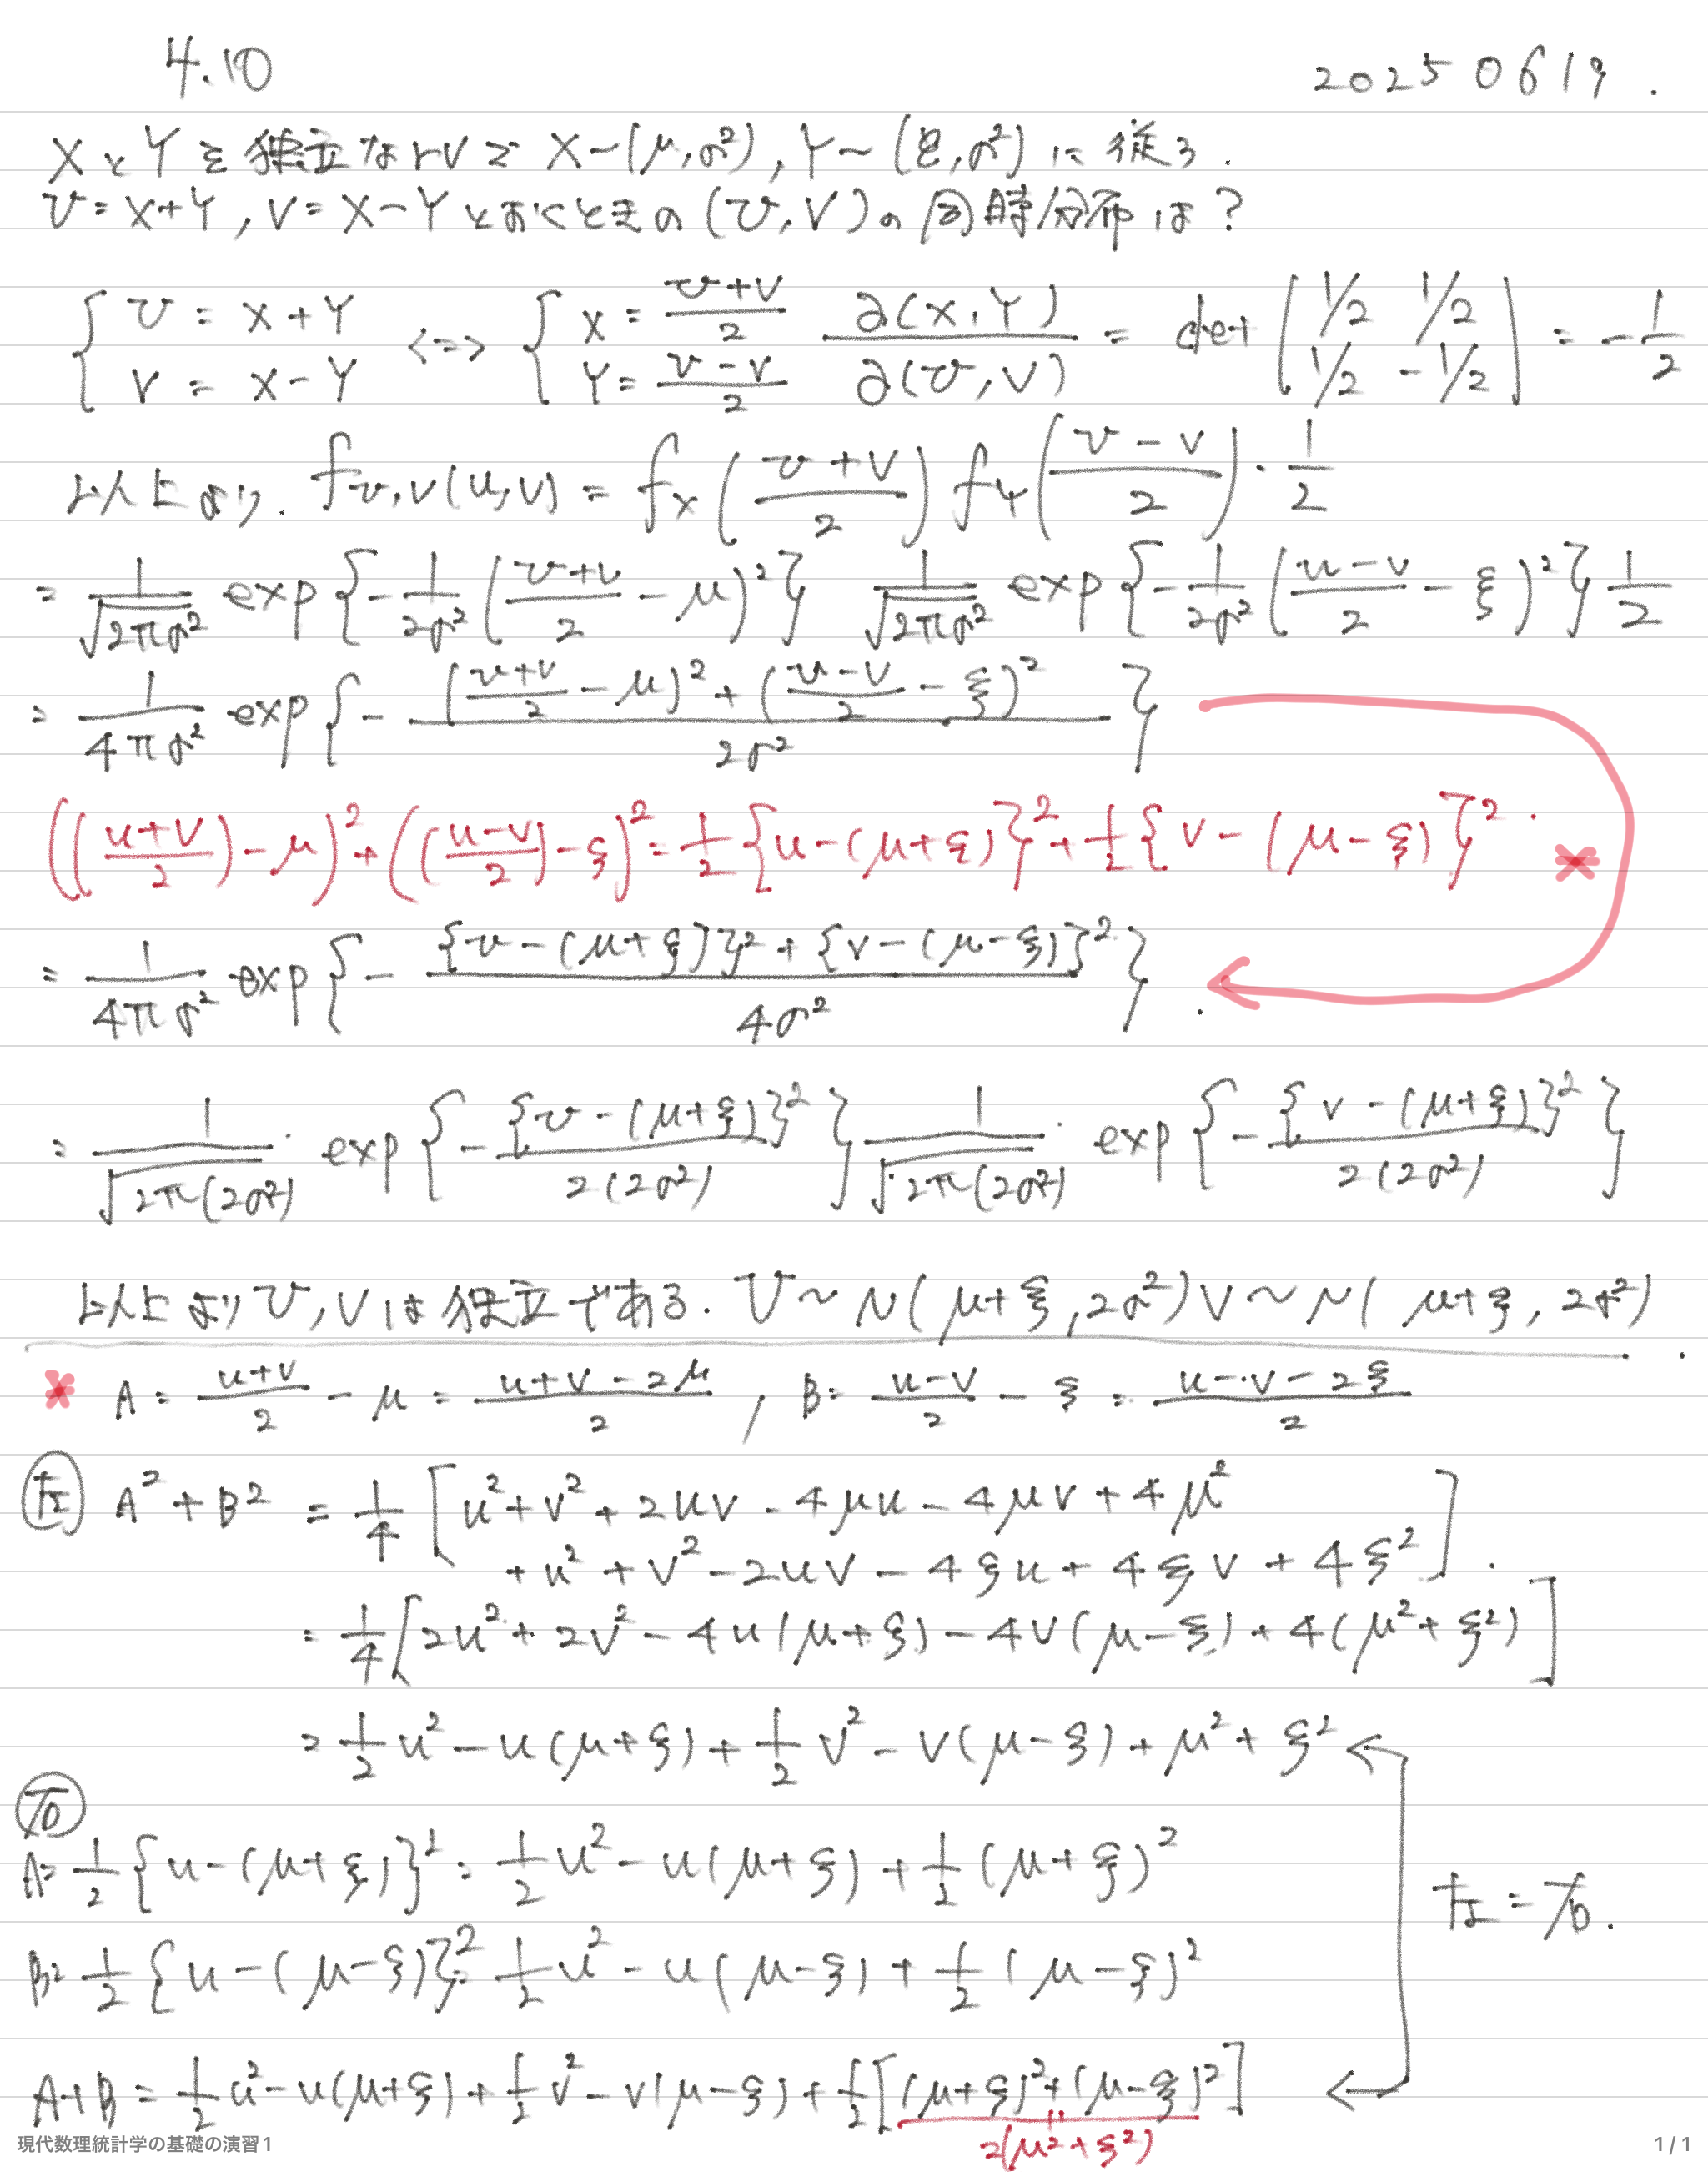 4.10
20250619.
XとYを独立なrvで X~(μ,σ²), Y~(ξ,σ²) に従う.
U=X+Y, V=X-Y とおくときの (U,V) の同時分布は?
{ U = X+Y, V = X-Y <=> { X = (U+V)/2, Y = (U-V)/2  ∂(X,Y)/∂(U,V) = det ( 1/2 1/2 ; 1/2 -1/2 ) = -1/2
以上より. f_{U,V}(u,v) = f_X((U+V)/2) f_Y((U-V)/2)・1/2
= 1/√(2πσ²) exp{-1/(2σ²) ((U+V)/2 - μ)²} 1/√(2πσ²) exp{-1/(2σ²) ((u-v)/2 - ξ)²} 1/2
= 1/(4πσ²) exp{- [((U+V)/2 - μ)² + ((U-V)/2 - ξ)²]/(2σ²)}
(((u+v)/2) - μ)² + (((u-v)/2) - ξ)² = 1/2 {u-(μ+ξ)}² + 1/2 {v-(μ-ξ)}². *
= 1/(4πσ²) exp{- [{U-(μ+ξ)}² + {V-(μ-ξ)}²]/(4σ²)}.
= 1/√(2π(2σ²)) exp{- {U-(μ+ξ)}²/(2(2σ²))} 1/√(2π(2σ²)) exp{- {V-(μ+ξ)}²/(2(2σ²))}
以上より U,Vは独立である. U~N(μ+ξ, 2σ²) V~N(μ+ξ, 2σ²).
* A = (u+v)/2 - μ = (u+v-2μ)/2, B = (u-v)/2 - ξ = (u-v-2ξ)/2
左 A²+B² = 1/4 [u²+v²+2uv-4μu-4μv+4μ²
+u²+v²-2uv-4ξu+4ξv+4ξ²].
= 1/4 [2u²+2v²-4u(μ+ξ)-4v(μ-ξ)+4(μ²+ξ²)]
= 1/2 u² - u(μ+ξ) + 1/2 v² - v(μ-ξ) + μ²+ξ²
右
A= 1/2 {u-(μ+ξ)}² = 1/2 u² - u(μ+ξ) + 1/2 (μ+ξ)²
左=右.
B= 1/2 {u-(μ-ξ)}² = 1/2 u² - u(μ-ξ) + 1/2 (μ-ξ)²
A+B = 1/2 u² - u(μ+ξ) + 1/2 v² - v(μ-ξ) + 1/2 [(μ+ξ)²+(μ-ξ)²]
2(μ²+ξ²)
現代数理統計学の基礎の演習1
1/1